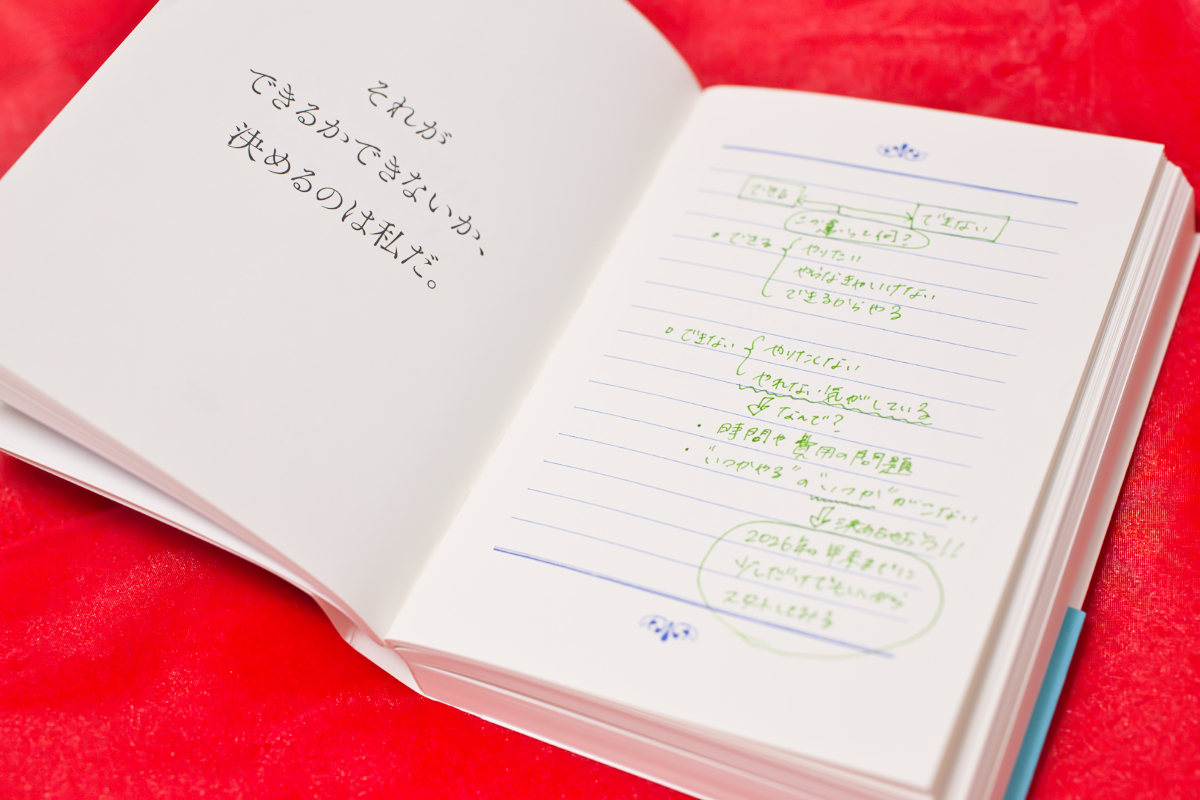 それが
できるかできないか、
決めるのは私だ。
できる できない
この違いって何?
・できる やりたい
やらなきゃいけない
できるからやる
・できない やりたくない
やれない気がしている
なんで?
・時間や費用の問題
・"いつかやる"の"いつか"がこない
決めちゃおう!!
2026年の年末までに
少しだけでもいいから
スタートしてみる